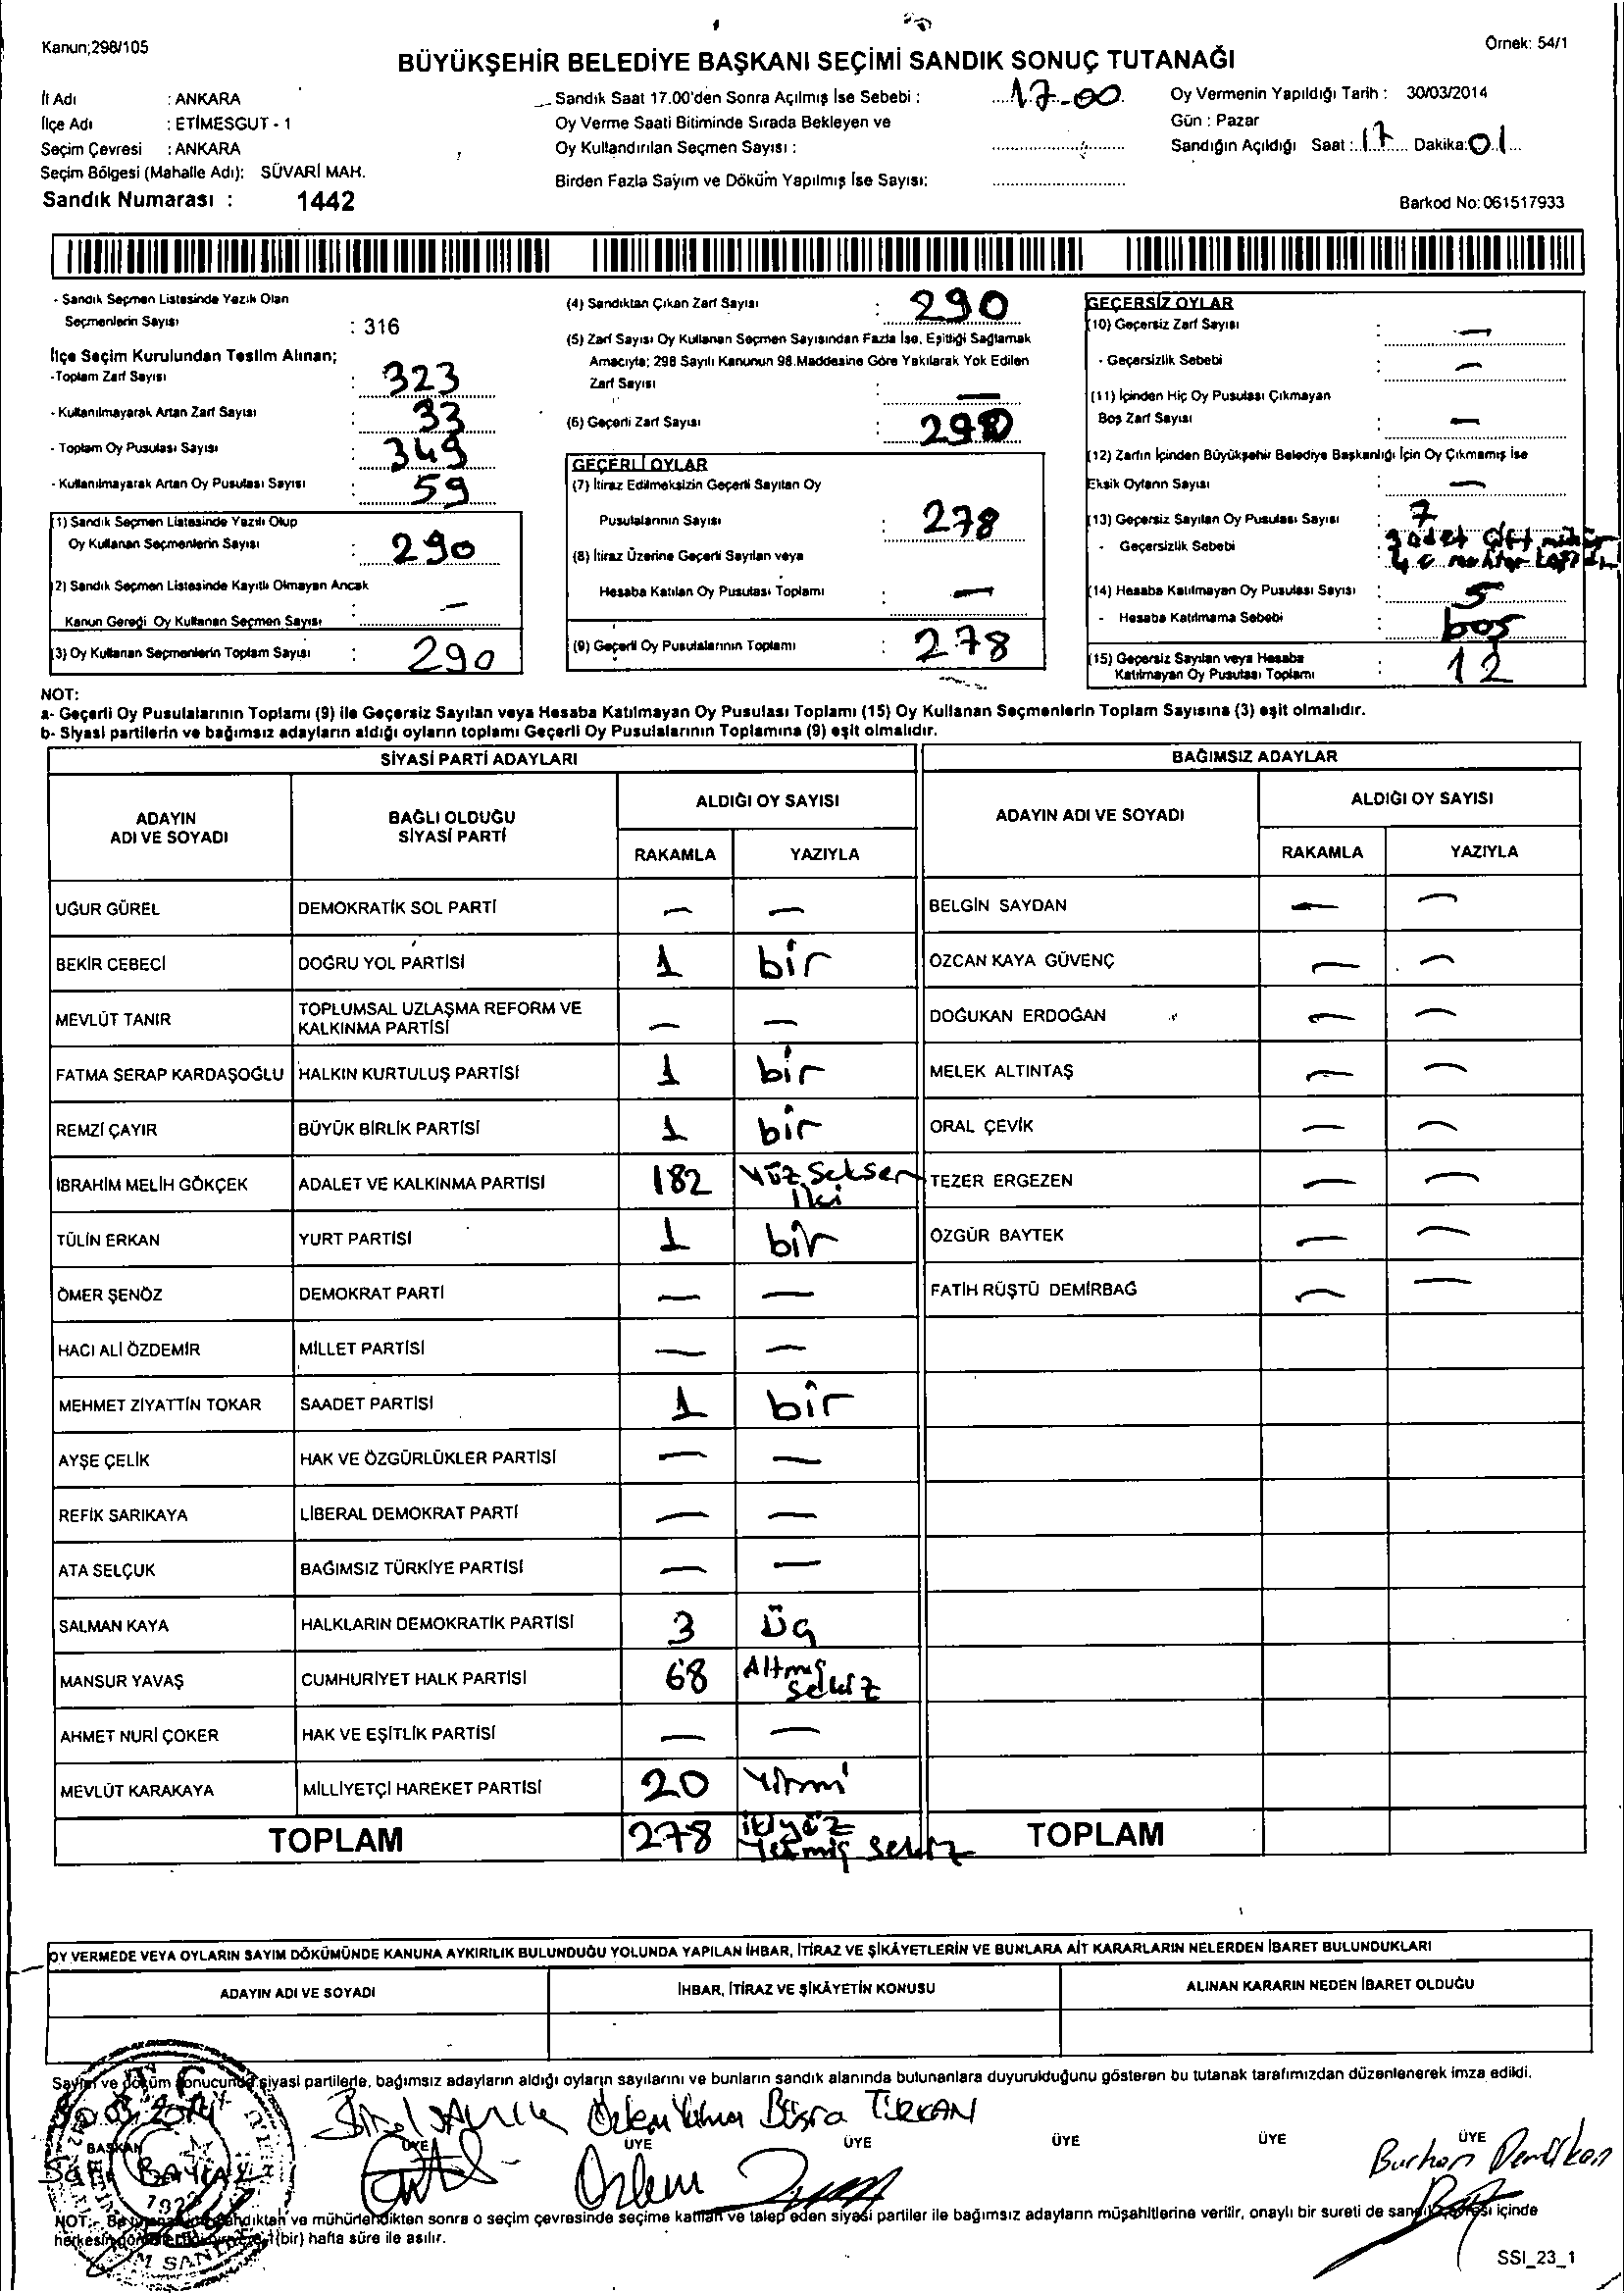 Kanun;298/105
Örnek: 54/1
BÜYÜKŞEHİR BELEDİYE BAŞKANI SEÇİMİ SANDIK SONUÇ TUTANAĞI
İl Adı : ANKARA
İlçe Adı : ETİMESGUT - 1
Seçim Çevresi : ANKARA
Seçim Bölgesi (Mahalle Adı): SÜVARİ MAH.
Sandık Numarası : 1442
Sandık Saat 17.00'den Sonra Açılmış İse Sebebi : 17-00
Oy Verme Saati Bitiminde Sırada Bekleyen ve
Oy Kullandırılan Seçmen Sayısı :
Birden Fazla Sayım ve Döküm Yapılmış İse Sayısı:
Oy Vermenin Yapıldığı Tarih : 30/03/2014
Gün : Pazar
Sandığın Açıldığı Saat : 17 Dakika: 01
Barkod No: 061517933
- Sandık Seçmen Listesinde Yazılı Olan
Seçmenlerin Sayısı : 316
İlçe Seçim Kurulundan Teslim Alınan;
-Toplam Zarf Sayısı : 323
- Kullanılmayarak Artan Zarf Sayısı : 33
- Toplam Oy Pusulası Sayısı : 349
- Kullanılmayarak Artan Oy Pusulası Sayısı : 59
(1) Sandık Seçmen Listesinde Yazılı Olup
Oy Kullanan Seçmenlerin Sayısı : 290
(2) Sandık Seçmen Listesinde Kayıtlı Olmayan Ancak
Kanun Gereği Oy Kullanan Seçmen Sayısı : —
(3) Oy Kullanan Seçmenlerin Toplam Sayısı : 290
(4) Sandıktan Çıkan Zarf Sayısı : 290
(5) Zarf Sayısı Oy Kullanan Seçmen Sayısından Fazla İse, Eşitliği Sağlamak
Amacıyla; 298 Sayılı Kanunun 98.Maddesine Göre Yakılarak Yok Edilen
Zarf Sayısı : —
(6) Geçerli Zarf Sayısı : 290
GEÇERLİ OYLAR
(7) İtiraz Edilmeksizin Geçerli Sayılan Oy
Pusulalarının Sayısı : 278
(8) İtiraz Üzerine Geçerli Sayılan veya
Hesaba Katılan Oy Pusulası Toplamı : —
(9) Geçerli Oy Pusulalarının Toplamı : 278
GEÇERSİZ OYLAR
(10) Geçersiz Zarf Sayısı : —
- Geçersizlik Sebebi : —
(11) İçinden Hiç Oy Pusulası Çıkmayan
Boş Zarf Sayısı : —
(12) Zarfın İçinden Büyükşehir Belediye Başkanlığı İçin Oy Çıkmamış İse
Eksik Oyların Sayısı : —
(13) Geçersiz Sayılan Oy Pusulası Sayısı : 7
- Geçersizlik Sebebi : 3 adet çift mühür
(14) Hesaba Katılmayan Oy Pusulası Sayısı : 5
- Hesaba Katılmama Sebebi : boş
(15) Geçersiz Sayılan veya Hesaba
Katılmayan Oy Pusulası Toplamı : 12
NOT:
a- Geçerli Oy Pusulalarının Toplamı (9) ile Geçersiz Sayılan veya Hesaba Katılmayan Oy Pusulası Toplamı (15) Oy Kullanan Seçmenlerin Toplam Sayısına (3) eşit olmalıdır.
b- Siyasi partilerin ve bağımsız adayların aldığı oyların toplamı Geçerli Oy Pusulalarının Toplamına (9) eşit olmalıdır.
SİYASİ PARTİ ADAYLARI
ADAYIN ADI VE SOYADI
BAĞLI OLDUĞU SİYASİ PARTİ
ALDIĞI OY SAYISI
RAKAMLA YAZIYLA
UĞUR GÜREL DEMOKRATİK SOL PARTİ — —
BEKİR CEBECİ DOĞRU YOL PARTİSİ 1 bir
MEVLÜT TANIR TOPLUMSAL UZLAŞMA REFORM VE KALKINMA PARTİSİ — —
FATMA SERAP KARDAŞOĞLU HALKIN KURTULUŞ PARTİSİ 1 bir
REMZİ ÇAYIR BÜYÜK BİRLİK PARTİSİ 1 bir
İBRAHİM MELİH GÖKÇEK ADALET VE KALKINMA PARTİSİ 182 Yüz Seksen iki
TÜLİN ERKAN YURT PARTİSİ 1 bir
ÖMER ŞENÖZ DEMOKRAT PARTİ — —
HACI ALİ ÖZDEMİR MİLLET PARTİSİ — —
MEHMET ZİYATTİN TOKAR SAADET PARTİSİ 1 bir
AYŞE ÇELİK HAK VE ÖZGÜRLÜKLER PARTİSİ — —
REFİK SARIKAYA LİBERAL DEMOKRAT PARTİ — —
ATA SELÇUK BAĞIMSIZ TÜRKİYE PARTİSİ — —
SALMAN KAYA HALKLARIN DEMOKRATİK PARTİSİ 3 üç
MANSUR YAVAŞ CUMHURİYET HALK PARTİSİ 68 Altmış Sekiz
AHMET NURİ ÇOKER HAK VE EŞİTLİK PARTİSİ — —
MEVLÜT KARAKAYA MİLLİYETÇİ HAREKET PARTİSİ 20 Yirmi
TOPLAM 278 ikiyüz Yetmiş Sekiz
BAĞIMSIZ ADAYLAR
ADAYIN ADI VE SOYADI
ALDIĞI OY SAYISI
RAKAMLA YAZIYLA
BELGİN SAYDAN — —
ÖZCAN KAYA GÜVENÇ — —
DOĞUKAN ERDOĞAN — —
MELEK ALTINTAŞ — —
ORAL ÇEVİK — —
TEZER ERGEZEN — —
ÖZGÜR BAYTEK — —
FATİH RÜŞTÜ DEMİRBAĞ — —
TOPLAM
OY VERMEDE VEYA OYLARIN SAYIM DÖKÜMÜNDE KANUNA AYKIRILIK BULUNDUĞU YOLUNDA YAPILAN İHBAR, İTİRAZ VE ŞİKÂYETLERİN VE BUNLARA AİT KARARLARIN NELERDEN İBARET BULUNDUKLARI
ADAYIN ADI VE SOYADI İHBAR, İTİRAZ VE ŞİKÂYETİN KONUSU ALINAN KARARIN NEDEN İBARET OLDUĞU
Sayım ve döküm sonucunda siyasi partilerle, bağımsız adayların aldığı oyların sayılarını ve bunların sandık alanında bulunanlara duyurulduğunu gösteren bu tutanak tarafımızdan düzenlenerek imza edildi.
30.03.2014
Büşra TÜRKAN
BAŞKAN ÜYE ÜYE ÜYE ÜYE ÜYE ÜYE
Burhan
Özlem
NOT:- sandıktan ve mühürlendikten sonra o seçim çevresinde seçime katılan ve talep eden siyasi partiler ile bağımsız adayların müşahitlerine verilir, onaylı bir sureti de içinde
1(bir) hafta süre ile asılır.
SSI_23_1